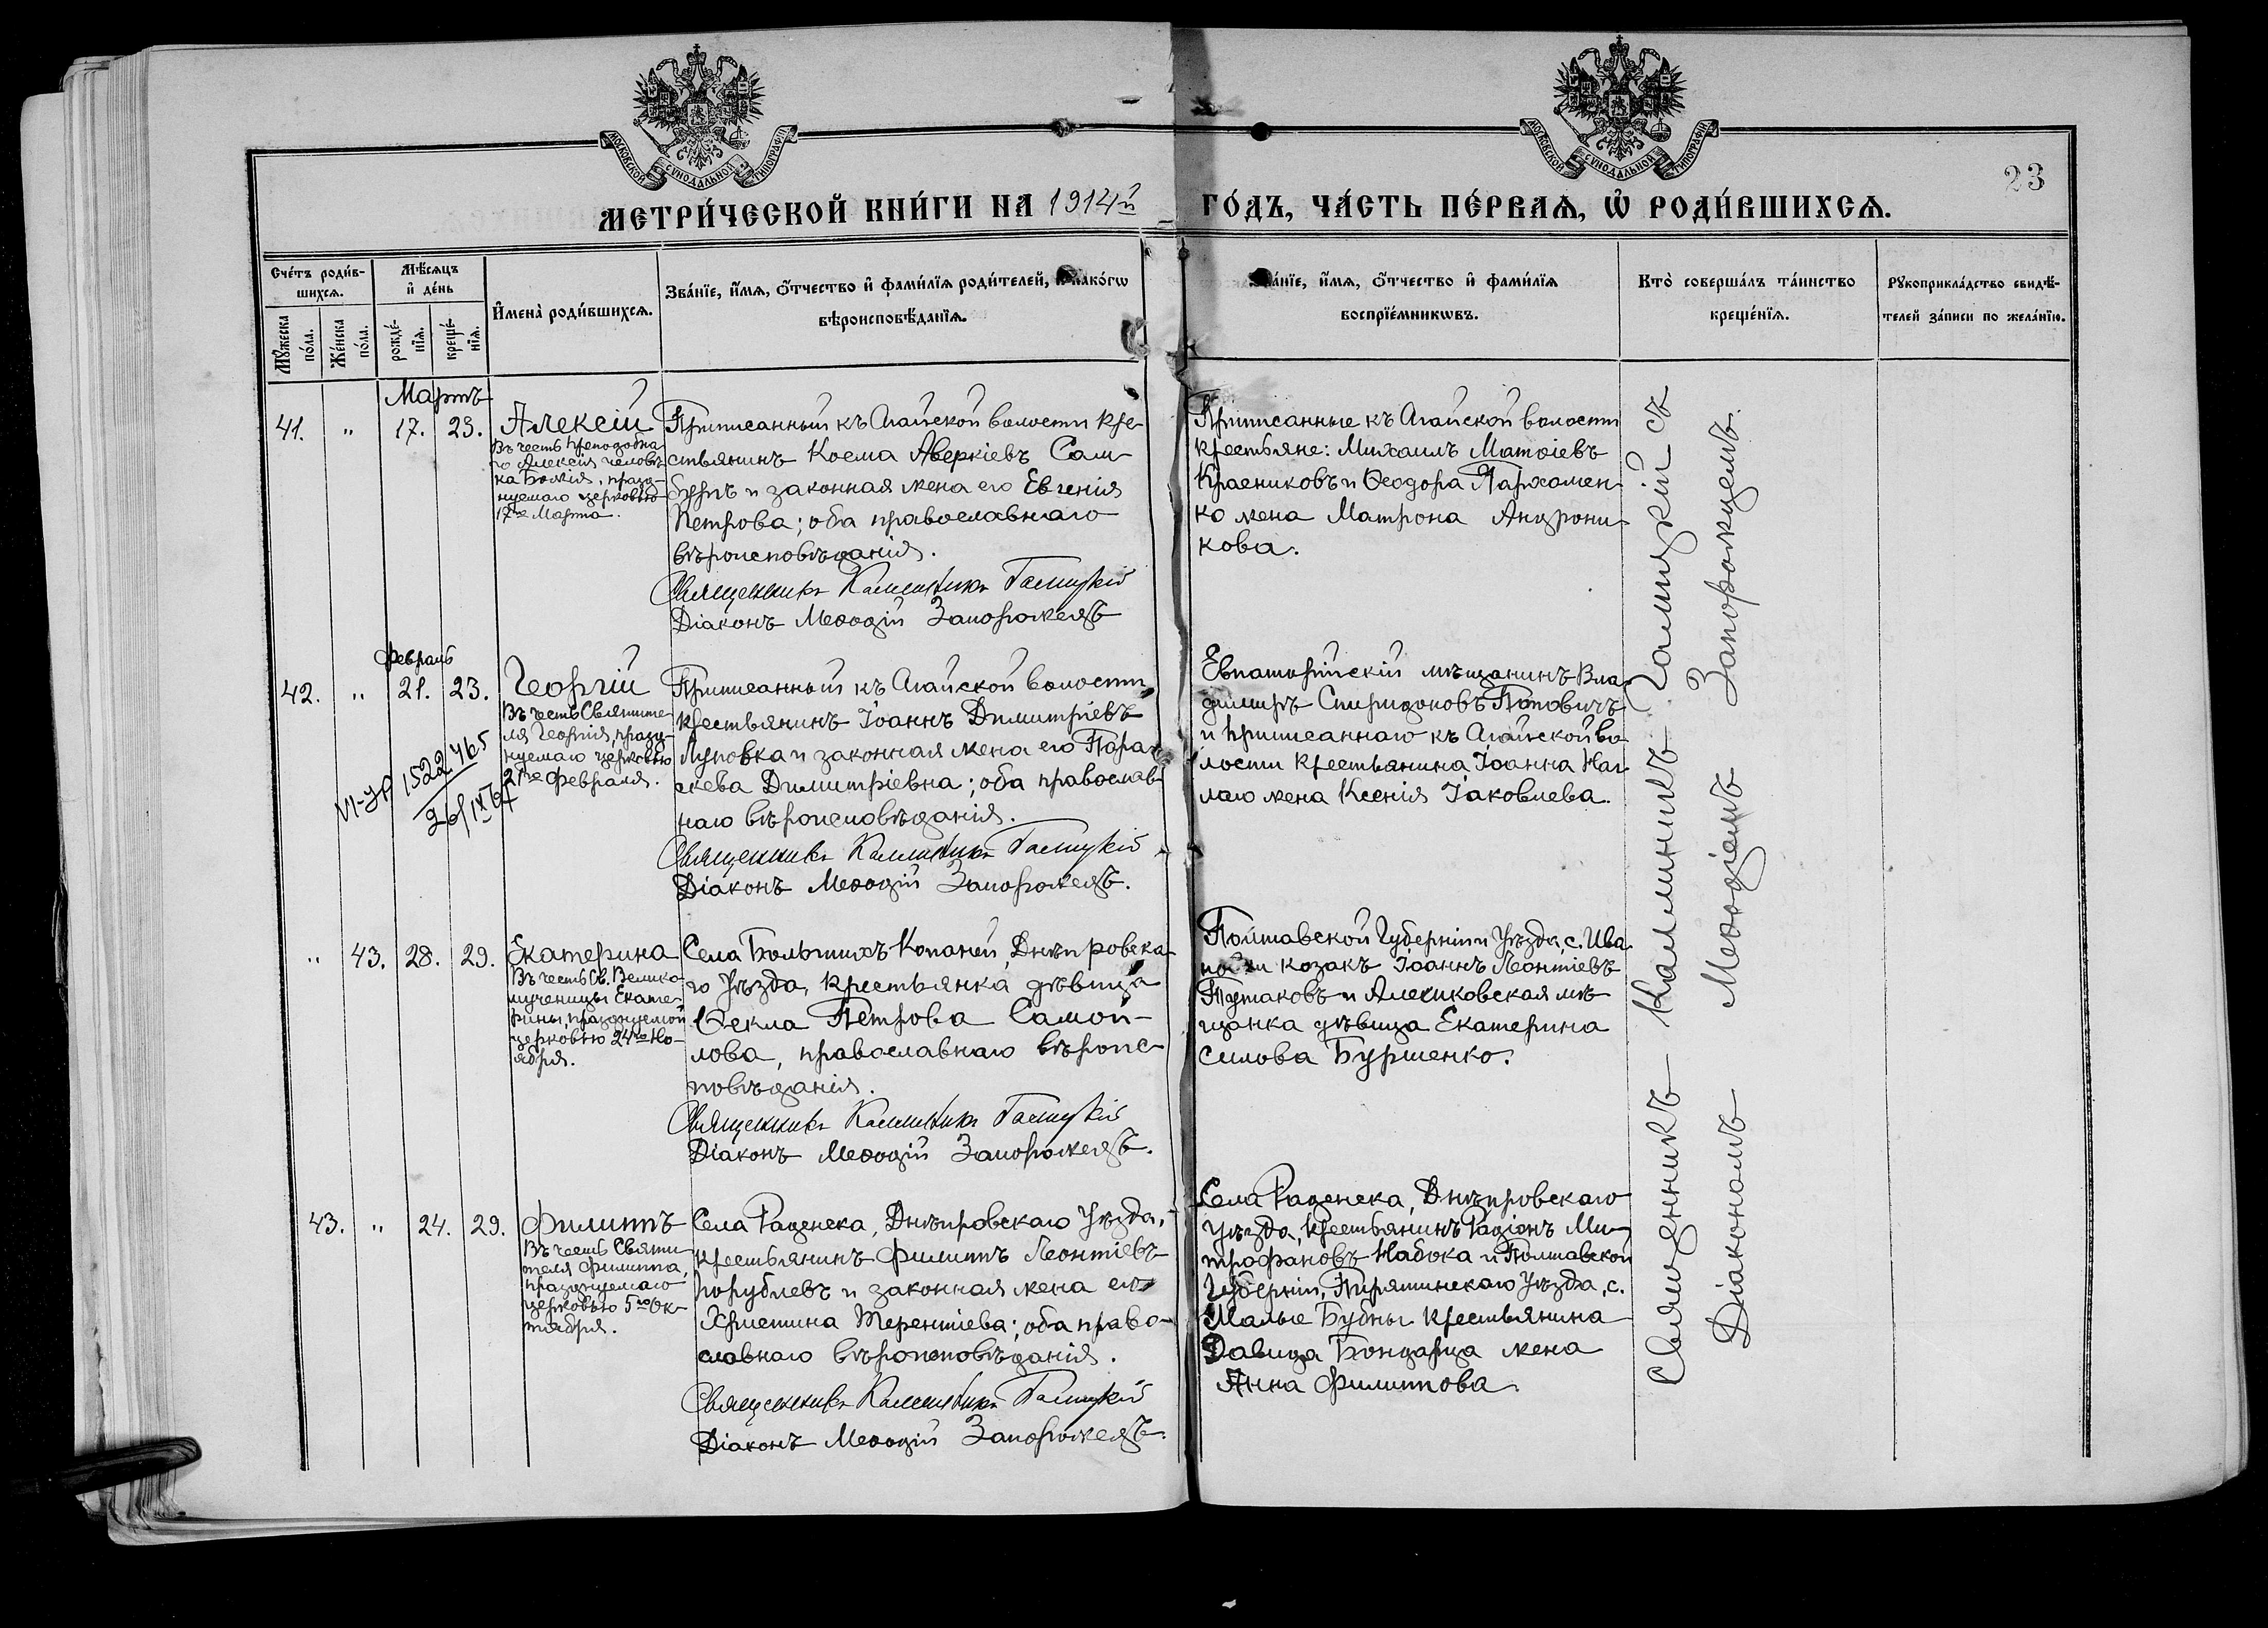 МОСКОВСКОЙ СѴНОДАЛЬНОЙ ТИПОГРАФІИ
МОСКОВСКОЙ СѴНОДАЛЬНОЙ ТИПОГРАФІИ
23
МЕТРИ́ЧЕСКОЙ КНИ́ГИ НА 1914й ГО́ДЪ, ЧА́СТЬ ПЕ́РВАѦ, Ѡ҆ РОДИ́ВШИХСѦ.
Сче́тъ роди́в-
шихсѧ.
Мꙋ́жеска
по́ла.
Же́нска
по́ла.
Мѣ́сѧцъ
и҆ де́нь
рожде́-
нїѧ.
креще́-
нїѧ.
И҆мена̀ роди́вшихсѧ.
Зва́нїе, и҆́мѧ, ѻ҆́тчество и҆ фами́лїѧ роди́телей, и҆ како́гѡ
вѣроисповѣ́данїѧ.
Зва́нїе, и҆́мѧ, ѻ҆́тчество и҆ фами́лїѧ
воспрїе́мникѡвъ.
Кто̀ соверша́лъ та́инство
креще́нїѧ.
Рꙋкоприкла́дство свидѣ́-
телей за́писи по жела́нїю.
Мартъ
41. " 17. 23. Алексій
Въ честь преподобна-
го Алексія человѣ-
ка Божія, празд-
нуемаго церковью
17го Марта.
Приписанный къ Агайской волости кре-
стьянинъ Косма Аверкіевъ Сам-
буръ и законная жена его Евгенія
Петрова; оба православнаго
вѣроисповѣданія.
Священникъ Каллиникъ Галицкій
Діаконъ Меѳодій Запорожецъ
Приписанные къ Агайской волости
крестьяне: Михаилъ Матѳіевъ
Красниковъ и Ѳеодора Пархомен-
ко жена Матрона Андрони-
кова.
Февраль
42. " 21. 23. Георгій
Въ честь Святите-
ля Георгія, празд-
нуемаго церковью
21го Февраля.
VI-УР 1522465
Приписанный къ Агайской волости,
крестьянинъ Іоаннъ Димитріевъ
Луповка и законная жена его Пара-
скева Димитріевна; оба православ-
наго вѣроисповѣданія.
Священникъ Каллиникъ Галицкій
Діаконъ Меѳодій Запорожецъ.
Евпаторійскій мѣщанинъ Вла-
димиръ Спиридоновъ Поповичъ
и приписаннаго къ Агайской во-
лости крестьянина Іоанна Наг-
лаго жена Ксенія Іаковлева.
" 43. 28. 29. Екатерина
Въ честь Св. Велико-
мученицы Екате-
рины, празднуемой
церковью 24го Но-
ября.
Села Большихъ Копаней, Днѣпровска-
го Уѣзда, крестьянка дѣвица
Ѳекла Петрова Самой-
лова, православнаго вѣроис-
повѣданія.
Священникъ Каллиникъ Галицкій
Діаконъ Меѳодій Запорожецъ.
Полтавской Губерніи и Уѣзда, с. Ива-
козакъ Іоаннъ Леонтіевъ
и Алешковская мѣ-
щанка дѣвица Екатерина
Силова Буршенко.
43. " 24. 29. Филиппъ
Въ честь Святи-
теля Филиппа,
празднуемаго
церковью 5го Ок-
тября.
Села Раденска, Днѣпровскаго Уѣзда,
крестьянинъ Филиппъ Леонтіевъ
Порублевъ и законная жена его
Христина Терентіева; оба право-
славнаго вѣроисповѣданія.
Священникъ Каллиникъ Галицкій
Діаконъ Меѳодій Запорожецъ.
Села Раденска, Днѣпровскаго
Уѣзда, крестьянинъ Радіонъ Ми-
трофановъ Набока и Полтавской
Губерніи, Пирятинскаго Уѣзда, с.
Малые Бубны крестьянина
Давида Бондарца жена
Анна Филиппова.
Священникъ Каллиникъ Галицкій съ
Діакономъ Меѳодіемъ Запорожцемъ.